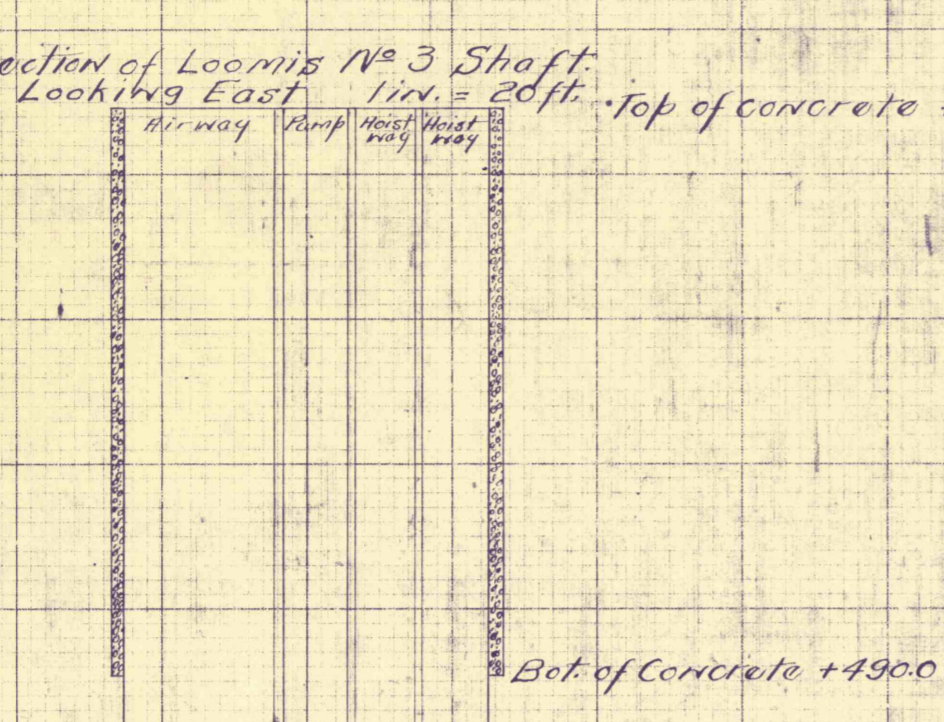 ection of Loomis Nº 3 Shaft.
Looking East 1 in. = 20 ft.
Top of concrete
Airway Pump Hoist way Hoist way
Bot. of Concrete +490.0